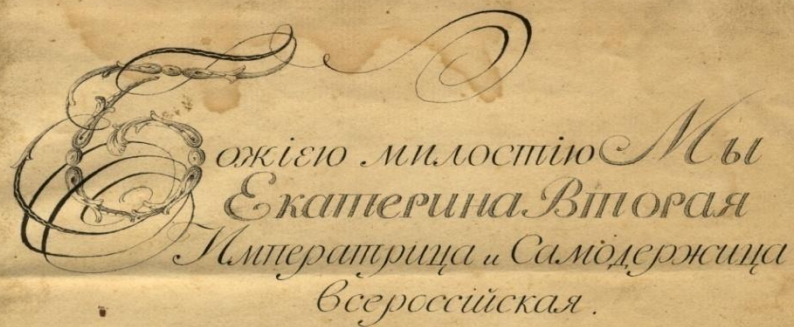 Божіею милостію Мы
Екатерина Вторая
Императрица и Самодержица
всероссійская.